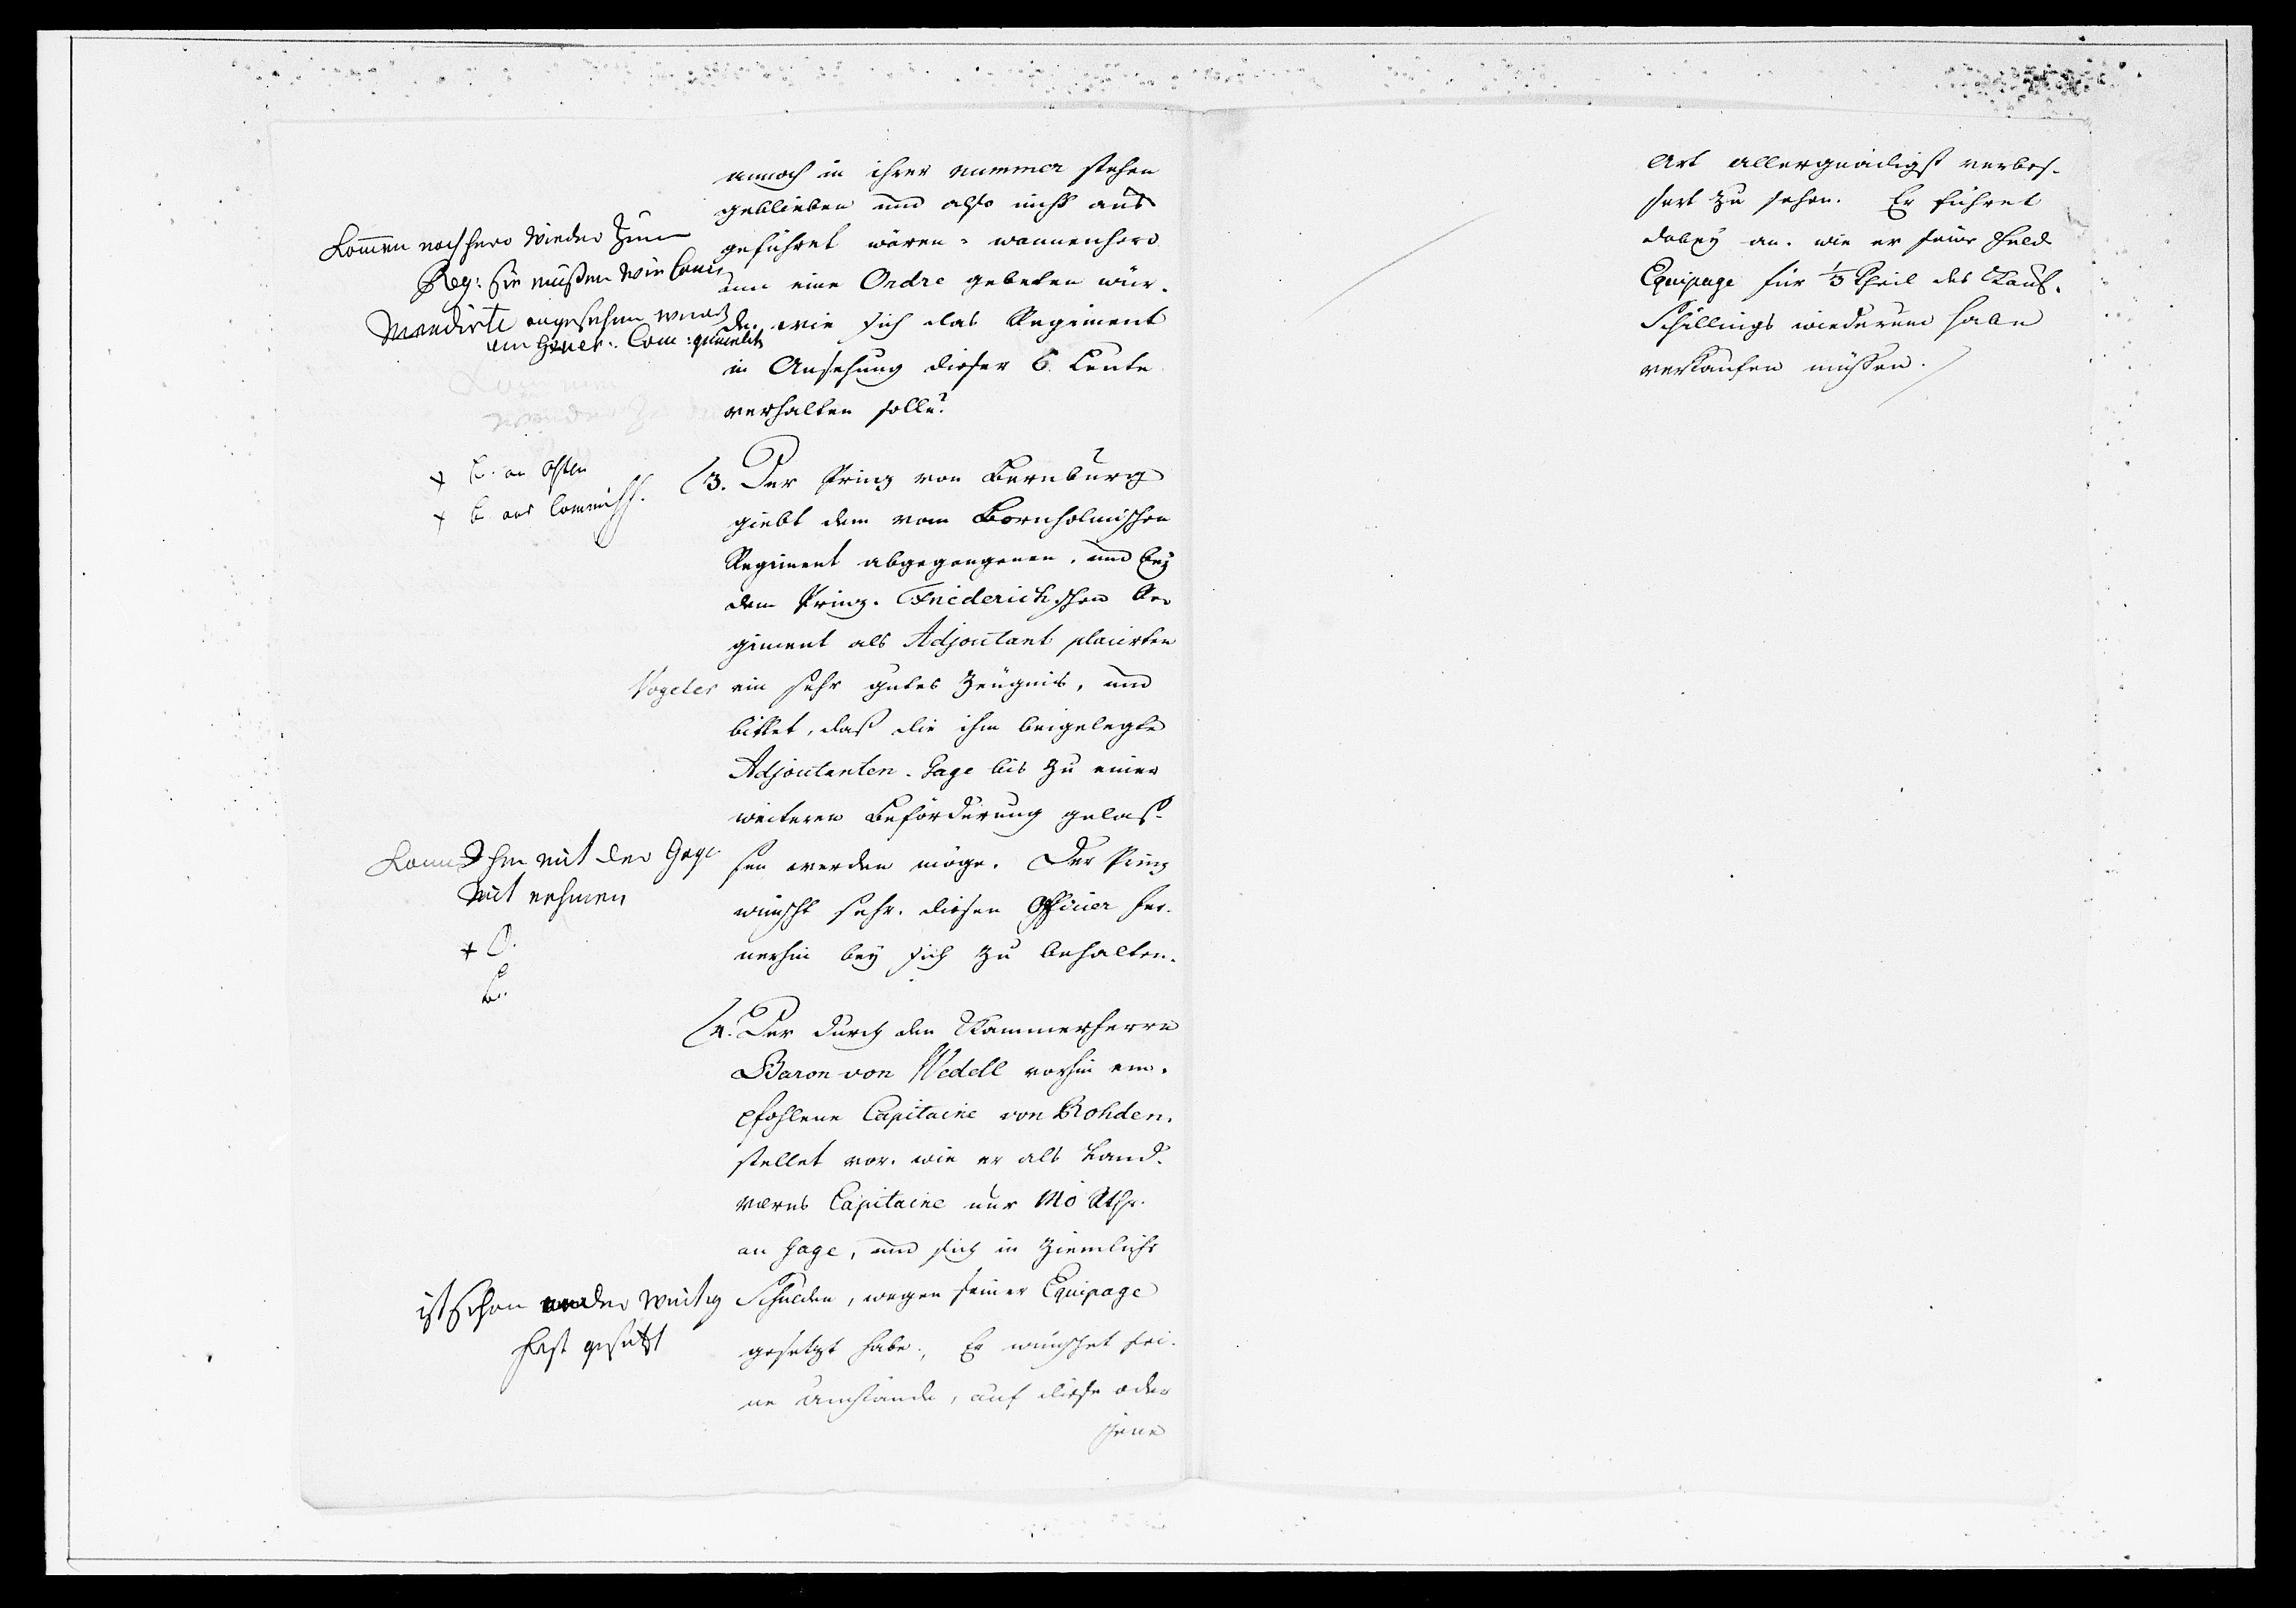 annoch in ihrer nummer stehen
geblieben und also nicht aus
geführet wären, wannenhero
um eine Ordre gebeten wür-
de, wie sich das Regiment
in Ansehung dieser 6 Leute
verhalten solle?
Kommen nachhero wieder zum
Reg: sie müßen wie Com
mandirte angesehen werd
dem Gener: Com: gemeldet
3. Der Prinz von Bernburg
giebt dem vom Bornholmischen
Regiment abgegangenen, und bey
dem Prinz Friederichschen Re-
giment als Adjoutant placirten
Vogeler ein sehr gutes Zeugnis, und
bittet, daß die ihm beigelegte
Adjoutanten-Gage bis zu einer
weiteren Beförderung gelas-
sen werden möge. Der Prinz
wünscht sehr, diesen Officier fer-
nerhin bey sich zu behalten.
+ an Osten
+ ans Commiss.
Kann Ihm mit der Gage
mit nehmen
+ O.
4. Der durch den Kammerherrn
Baron von Wedell vorhin em-
pfohlene Capitaine von Rohden,
stellet vor, wie er als Land-
werns Capitaine nur 140 Rthr.
an Gage, und sich in ziemliche
Schulden, wegen seiner Equipage
gesetzt habe. Er wünschet sei-
ne Umstände, auf diese oder
jene
ist schon
fest gesetzt
Art allergnädigst verbes-
sert zu sehen. Er führet
dabey an, wie er seine Feld
Equipage für 1/3 Theil des Kauf-
Schillings wiederum habe
verkaufen müssen.